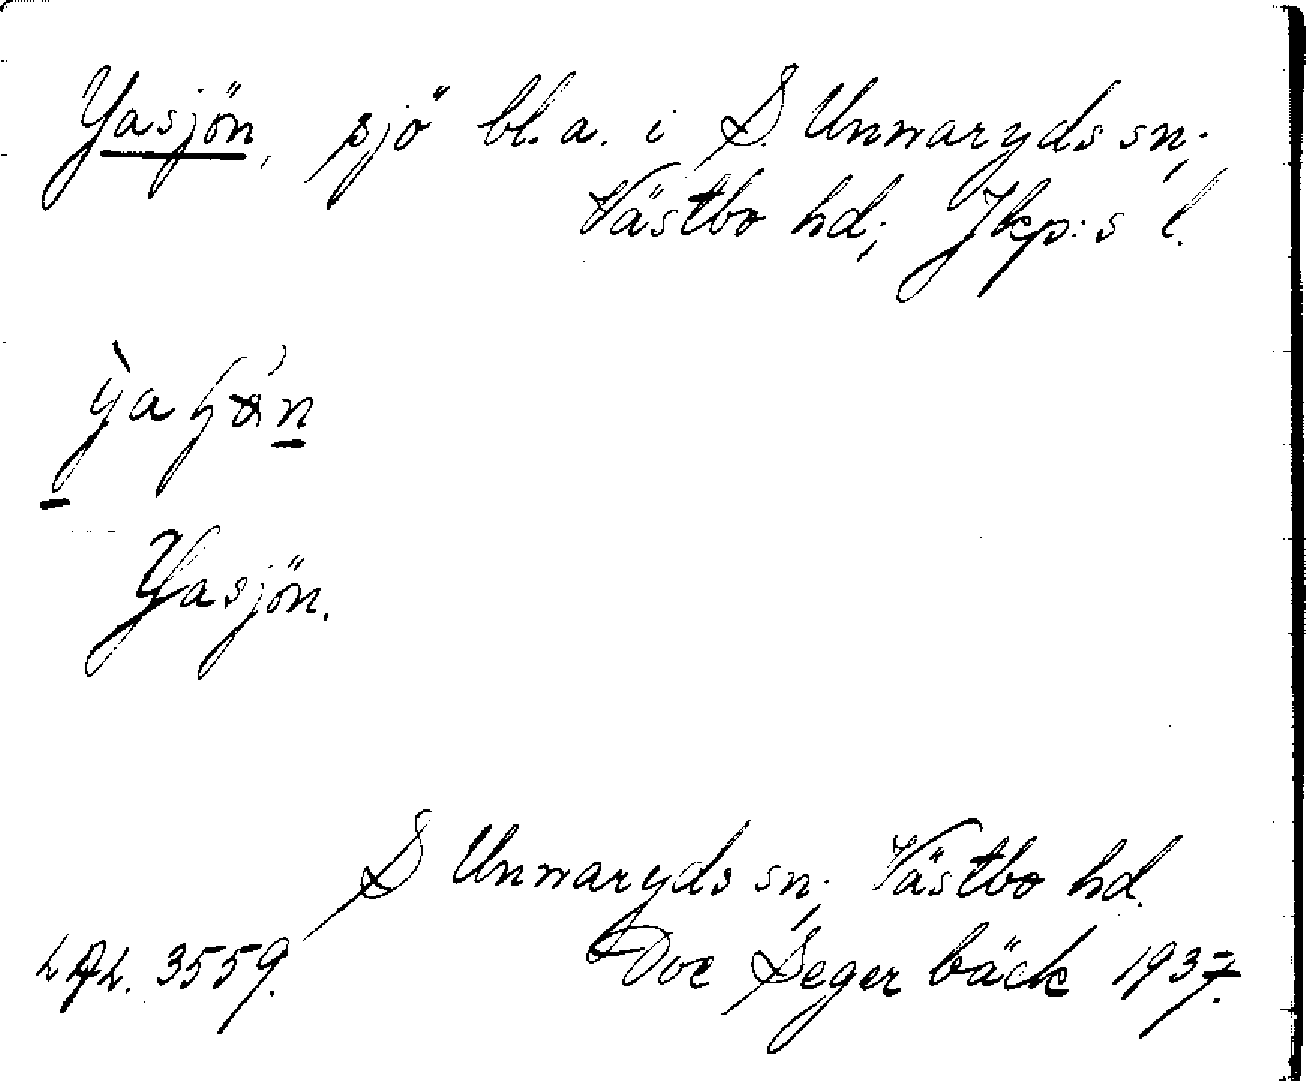 Yasjön, sjö bl. a. i S. Unnaryds sn;
Västbo hd; Jkp:s l.
Yasjön.
S Unnaryds sn; Västbo hd.
LAL. 3559. Doc Segerbäck 1937.